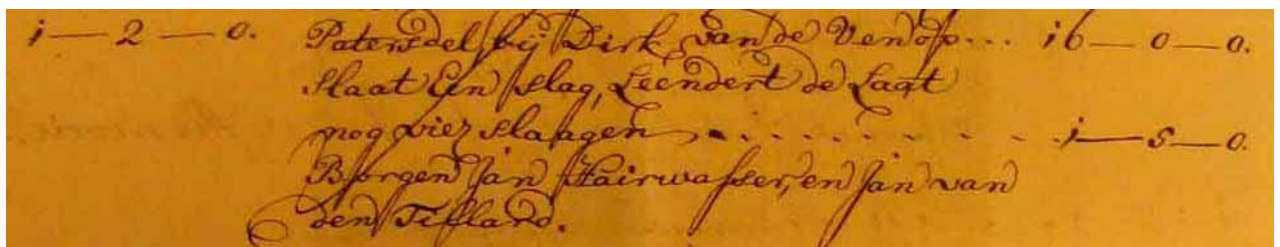 1 — 2 — 0. Patersdel, bij Dirk van de Ven op... 16 — 0 — 0.
slaat Een slag, Leendert de Laat
nog vier slaagen - - - - - - - - - 1 — 5 — 0.
Borgen Jan Hairwasser, en Jan van
den Tilland.